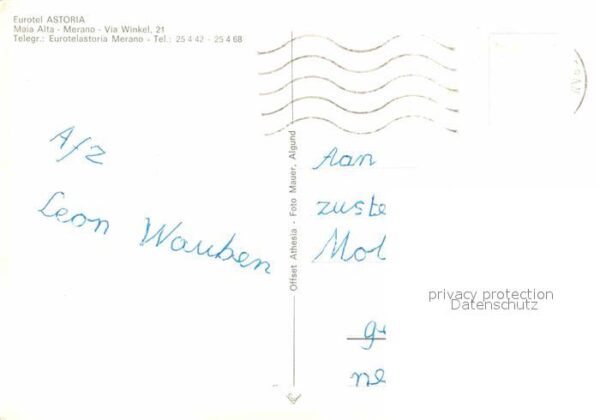 Eurotel ASTORIA
Maia Alta - Merano - Via Winkel, 21
Telegr.: Eurotelastoria Merano - Tel.: 25 4 42 - 25 4 68
A/Z
Leon Wauben
Offset Athesia - Foto Mauer, Algund
Aan
zuste
Mol
ge
ne
privacy protection
Datenschutz